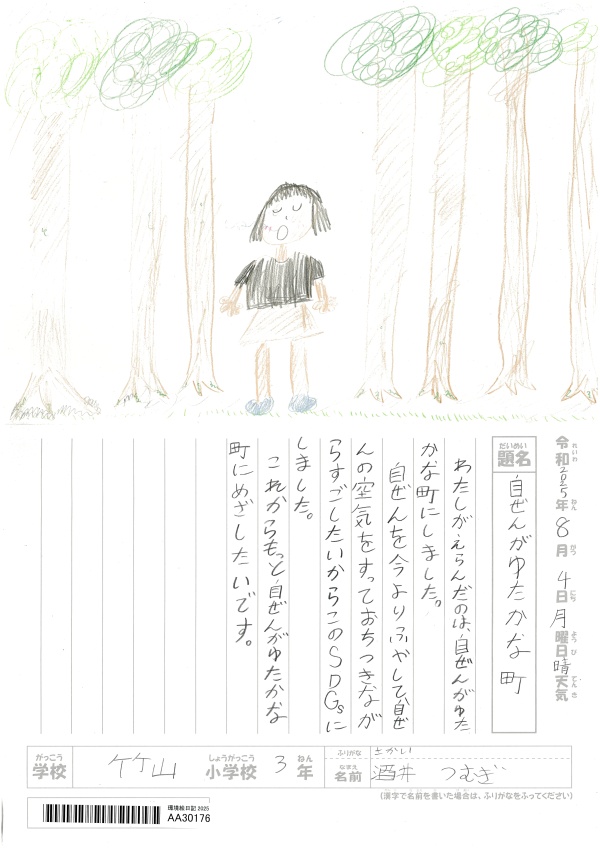 令和2025年8月4日月曜日晴天気
れいわ ねん がつ にち ようび てんき
だいめい
題名
自ぜんがゆたかな町
わたしがえらんだのは、自ぜんがゆた
かな町にしました。
自ぜんを今よりふやして、自ぜ
んの空気をすっておちつきなが
らすごしたいからこのSDGsに
しました。
これからもっと自ぜんがゆたかな
町にめざしたいです。
がっこう しょうがっこう ねん
学校 竹山 小学校 3年
ふりがな さかい
なまえ
名前 酒井 つむぎ
(漢字で名前を書いた場合は、ふりがなをふってください)
環境絵日記 2025
AA30176